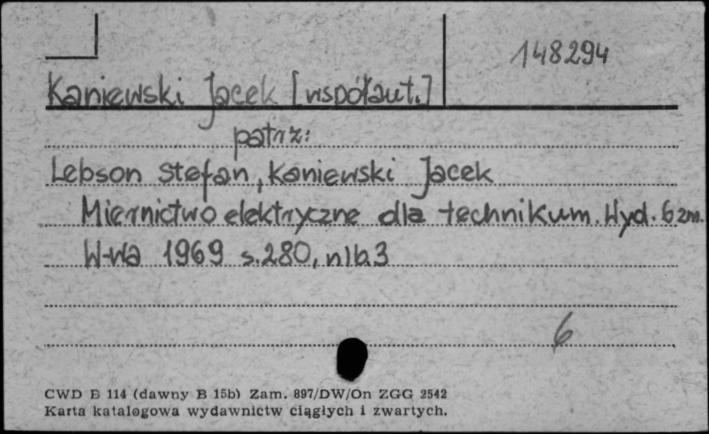 148294
Kaniewski Jacek [współaut.]
patrz:
Lebson Stefan, Kaniewski Jacek
Miernictwo elektryczne dla technikum. Wyd. 6 zm.
W-wa 1969 s. 280, nlb. 3
6
CWD B 114 (dawny B 15b) Zam. 897/DW/On ZGG 2542
Karta katalogowa wydawnictw ciągłych i zwartych.